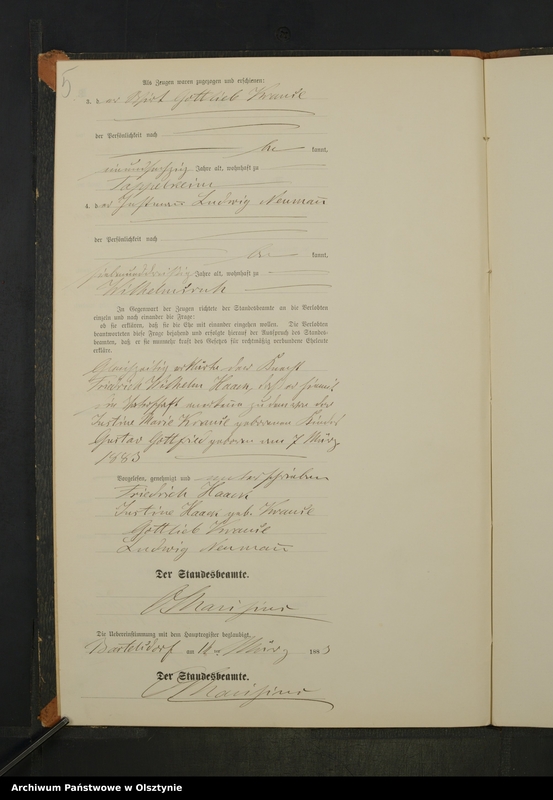 5
Als Zeugen waren zugezogen und erschienen:
3. der Wirt Gottlieb Krause
der Persönlichkeit nach
be kannt,
Jahre alt, wohnhaft zu
4. der Ludwig Neumann
der Persönlichkeit nach
be kannt,
siebenunddreißig Jahre alt, wohnhaft zu
Wilhelmsruh
In Gegenwart der Zeugen richtete der Standesbeamte an die Verlobten
einzeln und nach einander die Frage:
ob sie erklären, daß sie die Ehe mit einander eingehen wollen. Die Verlobten
beantworteten diese Frage bejahend und erfolgte hierauf der Ausspruch des Standes-
beamten, daß er sie nunmehr kraft des Gesetzes für rechtmäßig verbundene Eheleute
erkläre.
Gleichzeitig erklärte der Knecht
Friedrich Wilhelm Haack, daß er hiermit
die Vaterschaft anerkenne zu dem von der
Justine Marie Krause geborenen Kindes
Gustav Gottfried geboren am 7 März
1883
Vorgelesen, genehmigt und unterschrieben
Friedrich Haack
Justine Haack geb. Krause
Gottlieb Krause
Ludwig Neumann
Der Standesbeamte.
Die Uebereinstimmung mit dem Hauptregister beglaubigt.
Bartelsdorf am März 1883
Der Standesbeamte.
Archiwum Państwowe w Olsztynie